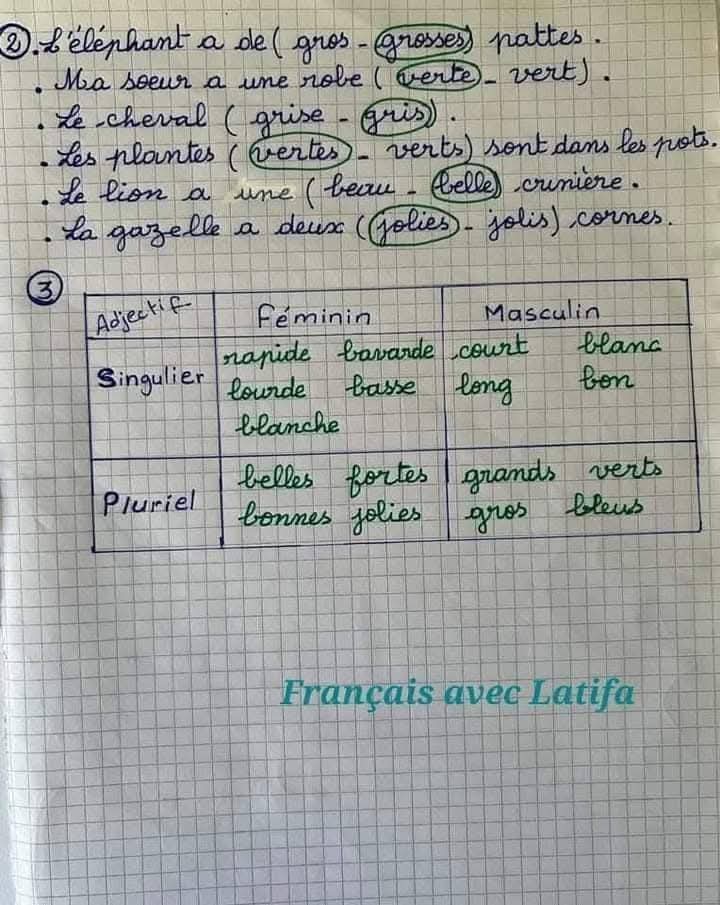 2. L'éléphant a de ( gros - grosses) pattes.
. Ma soeur a une robe ( verte - vert).
. Le cheval ( grise - gris).
. Les plantes ( vertes - verts) sont dans les pots.
. Le lion a une ( beau - belle) crinière.
. La gazelle a deux (jolies - jolis) cornes.
3
Adjectif Féminin Masculin
Singulier rapide bavarde court blanc
lourde basse long bon
blanche
Pluriel belles fortes grands verts
bonnes jolies gros bleus
Français avec Latifa